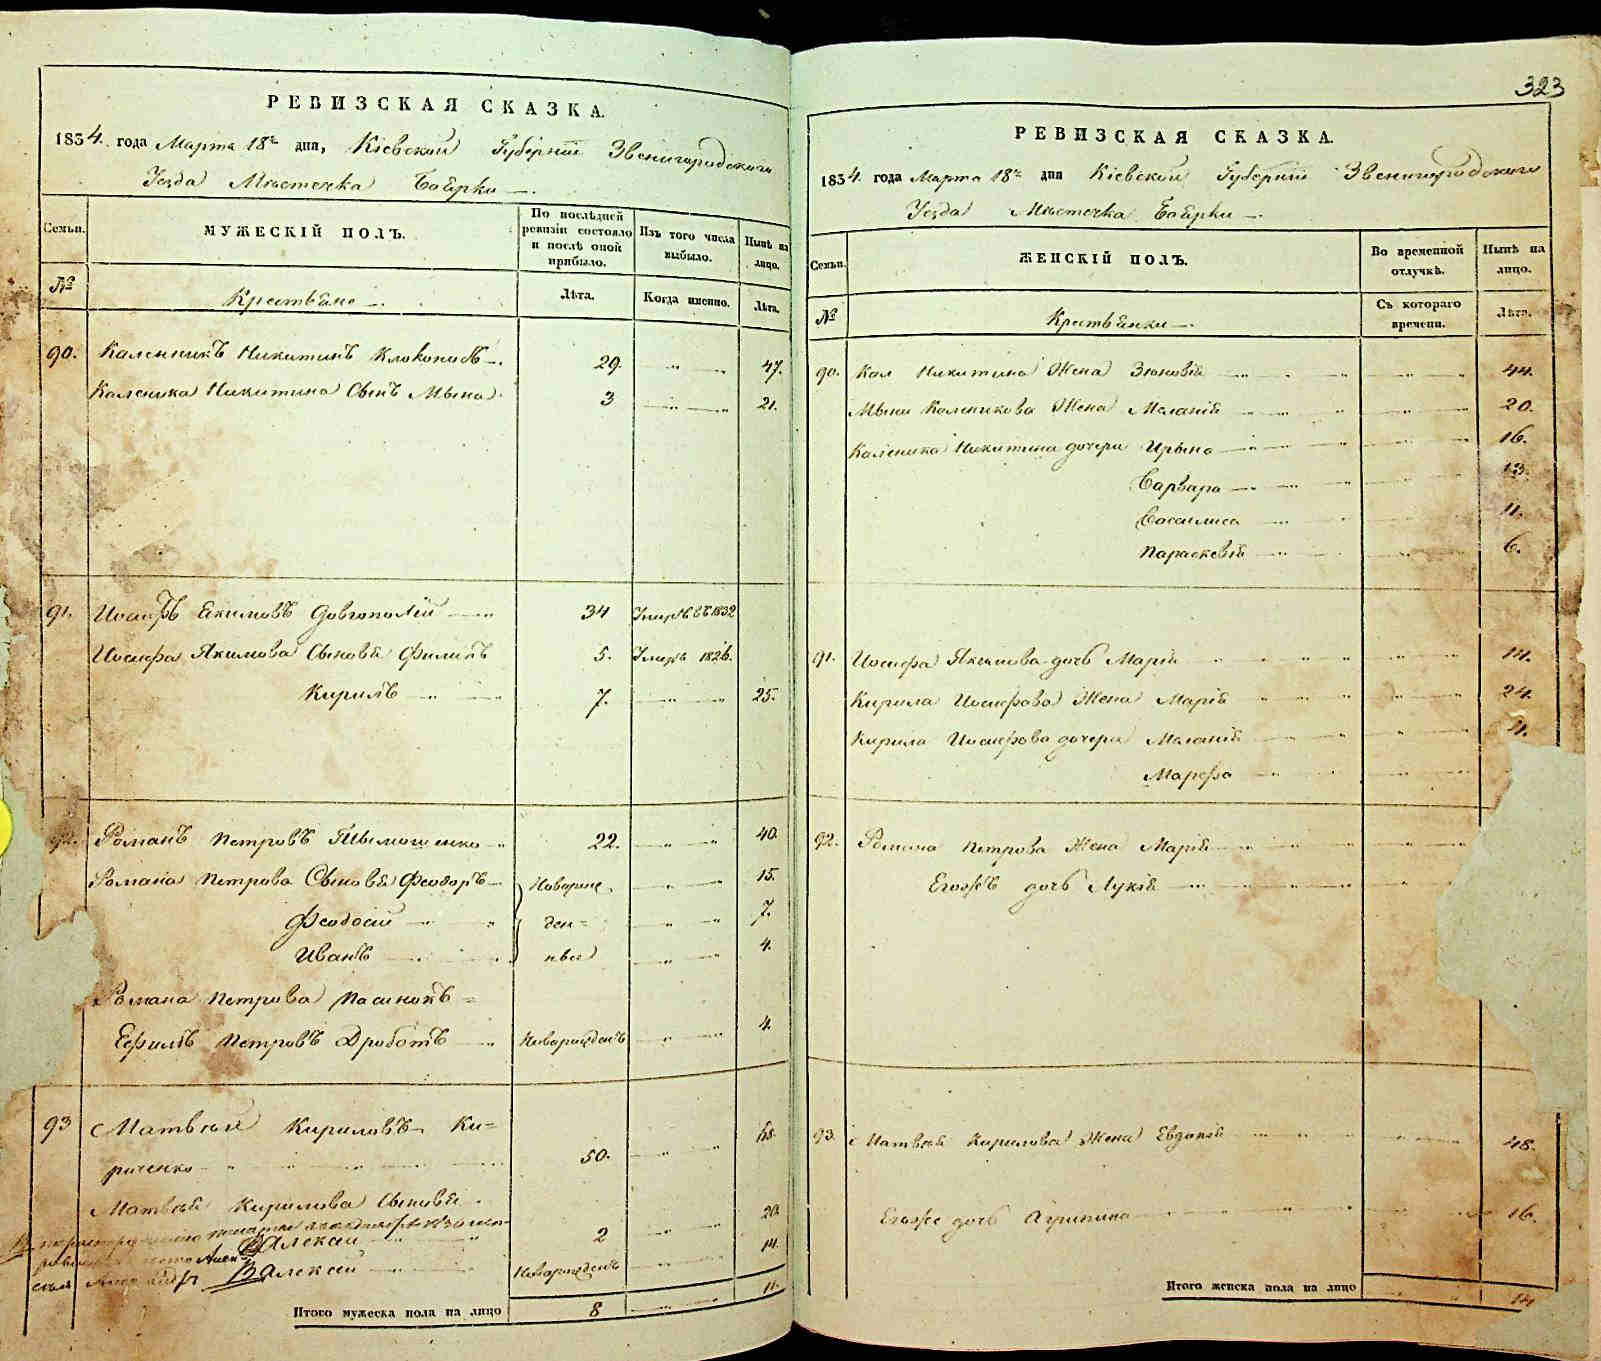 РЕВИЗСКАЯ СКАЗКА.
1834. года Марта 18го дня, Кіевской Губерніи Звенигородского
Уезда Мѣстечка Боярки
Семьи.
МУЖЕСКІЙ ПОЛЪ.
По послѣдней ревизіи состояло и послѣ оной прибыло.
Изъ того числа выбыло.
Нынѣ на лицо.
№
Крестьяне
Лѣта.
Когда именно.
Лѣта.
90. Каленникъ Никитинъ 29. 47.
Каленика Никитина Сынъ Мына 3 21.
91. Иосифъ Екимовъ Довгополій 34 Умеръ въ 1832
Иосифа Якимова Сыновя Филипъ 5. Умеръ 1826.
Кирилъ 7. 25.
92. Романъ Петровъ Тымошенко 22. 40.
Романа Петрова Сыновя Феодоръ Новорож 15.
Феодосій ден= 7.
Иванъ ныи 4.
Романа Петрова Пасинокъ =
Ефимъ Петровъ Дроботъ Новорожденъ 4.
93 Матвей Кириловъ Ки=
риченко 50. 68.
Матвея Кирилова Сыновя
Алексай 2 20.
Алексей Новорожденъ 14.
Итого мужеска пола на лицо 8 11.
323
РЕВИЗСКАЯ СКАЗКА.
1834. года Марта 18го дня Кіевской Губерніи Звенигородского
Уезда Мѣстечка Боярки
Семьи.
ЖЕНСКІЙ ПОЛЪ.
Во временной отлучкѣ.
Нынѣ на лицо.
№
Крестьянки
Съ котораго времени.
Лѣта.
90. Кал Никитина Жена Зіновія 44.
Мыни Каленикова Жена Меланія 20.
Каленика Никитина дочери Ирына 16.
Варвара 13.
Василиса 11.
Параскевія 6.
91. Иосифа Якимова дочь Марія 14.
Кирила Иосифова Жена Марія 24.
Кирила Иосифова дочери Меланія 4.
Марфа
92. Романа Петрова Жена Марія
Егожъ дочь Лукія
93. Матвея Кирилова Жена Евдокія 48.
Егоже дочь Агрипина 16.
Итого женска пола на лицо 14